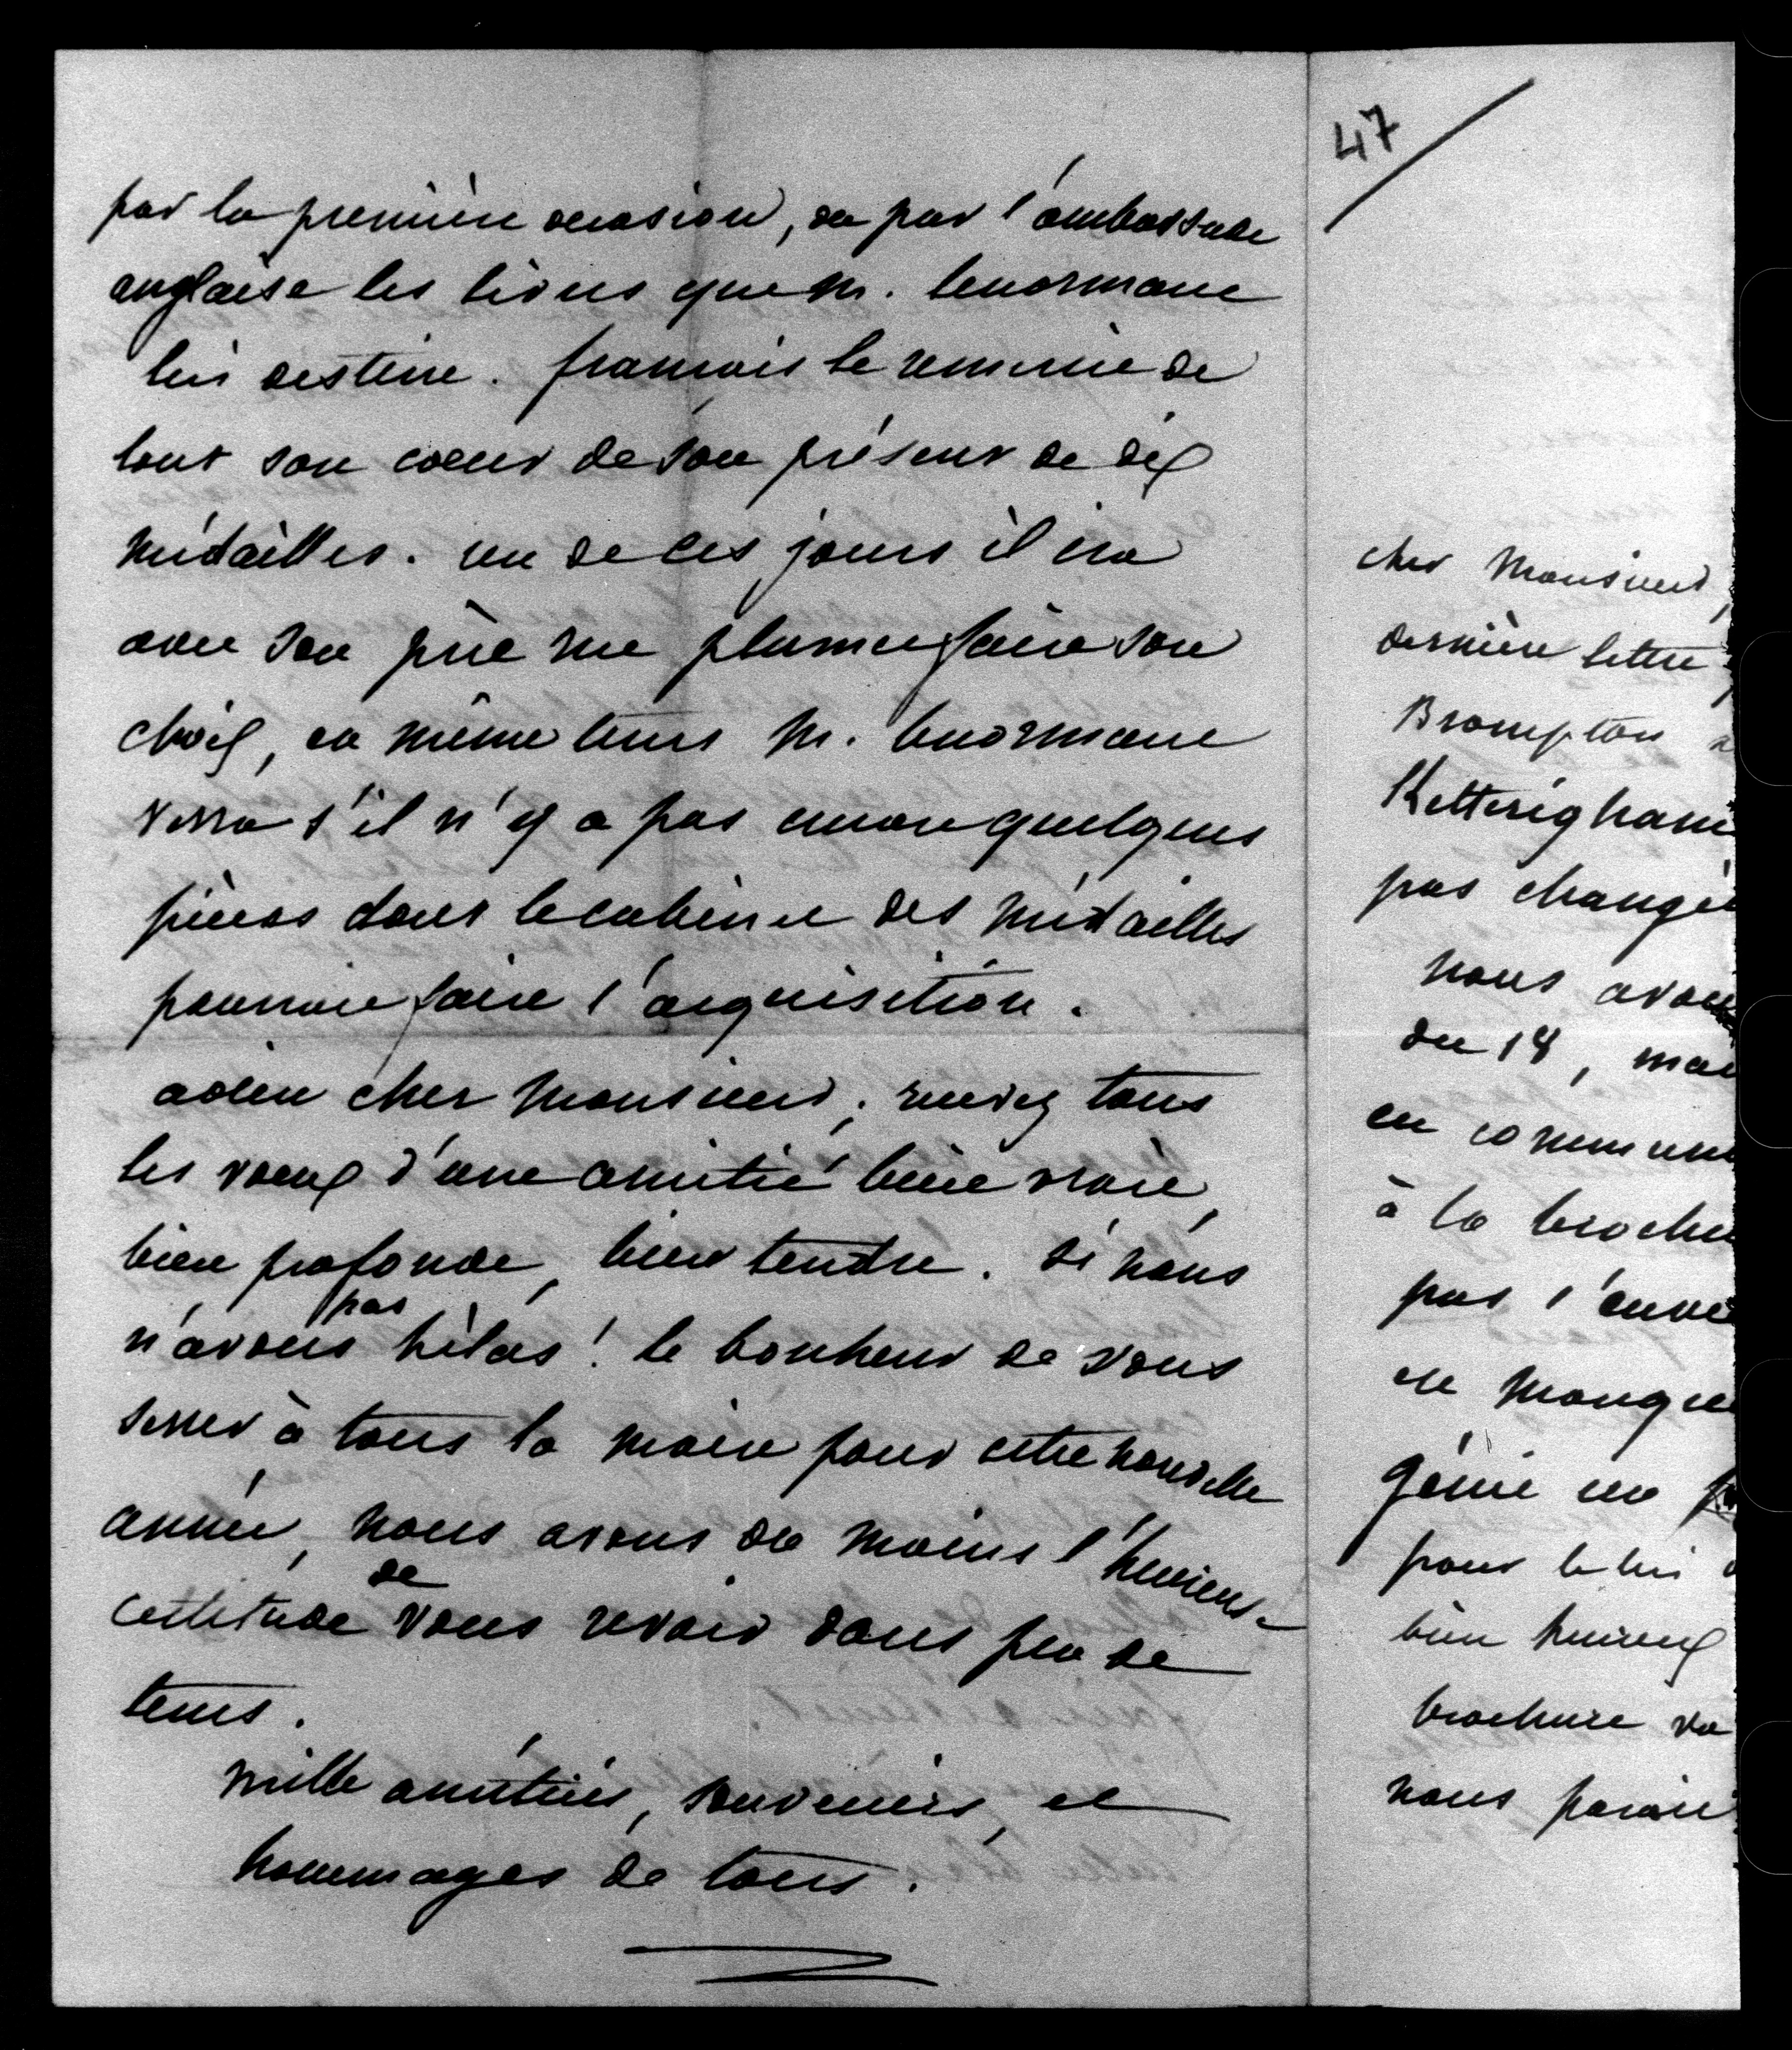 par la première occasion, ou par l'ambassade
anglaise les livres que M. Lenormant
lui destine. françois le remercie de
tout son coeur de son présent de dix
médailles. un de ces jours il ira
avec son père rue plumet faire son
choix, en même tems M. Lenormant
verra s'il n'y a pas encore quelques
pièces dont le cabinet des médailles
pourroit faire l'acquisition.
adieu cher Monsieur, recevez tous
les voeux d'une amitié bien vraie,
bien profonde, bien tendre. Si nous
n'avons pas hélas! le bonheur de vous
serrer à tous la main pour cette nouvelle
année, nous avons du moins l'heureuse
certitude de vous revoir dans peu de
tems.
mille amitiés, souvenirs, et
hommages de tous.
47
cher Monsieur,
dernière lettre
Brompton
Ketteringham
pas changé
nous avons
du 18, mai
en commun
à la brochu
pas l'envie
et manque
génie
pour le lui
bien heureux
brochure
nous paroit